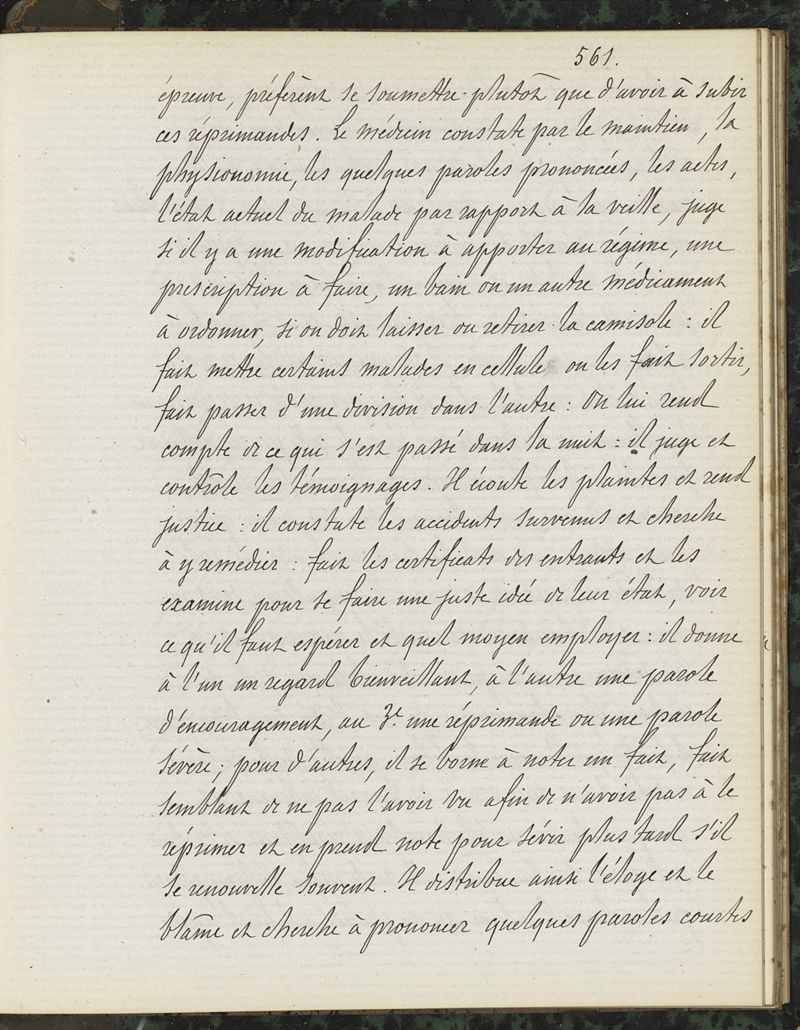 561.
épreuve, préfèrent se soumettre plutôt que d'avoir à subir
ces réprimandes. Le médecin constate par le maintien, la
physionomie, les quelques paroles prononcées, les actes,
l'état actuel du malade par rapport à la veille, juge
si il y a une modification à apporter au régime, une
prescription à faire, un bain ou un autre médicament
à ordonner, si on doit laisser ou retirer la camisole : il
fait mettre certains malades en cellule ou les fait sortir,
fait passer d'une division dans l'autre : On lui rend
compte de ce qui s'est passé dans la nuit : il juge et
contrôle les témoignages. Il écoute les plaintes et rend
justice : il constate les accidents survenus et cherche
à y remédier : fait les certificats des entrants et les
examine pour se faire une juste idée de leur état, voir
ce qu'il faut espérer et quel moyen employer : il donne
à l'un un regard bienveillant, à l'autre une parole
d'encouragement, au 3e une réprimande ou une parole
sévère ; pour d'autres, il se borne à noter un fait, fait
semblant de ne pas l'avoir vu afin de n'avoir pas à le
réprimer et en prend note pour sévir plus tard s'il
se renouvelle souvent. Il distribue ainsi l'éloge et le
blâme et cherche à prononcer quelques paroles courtes